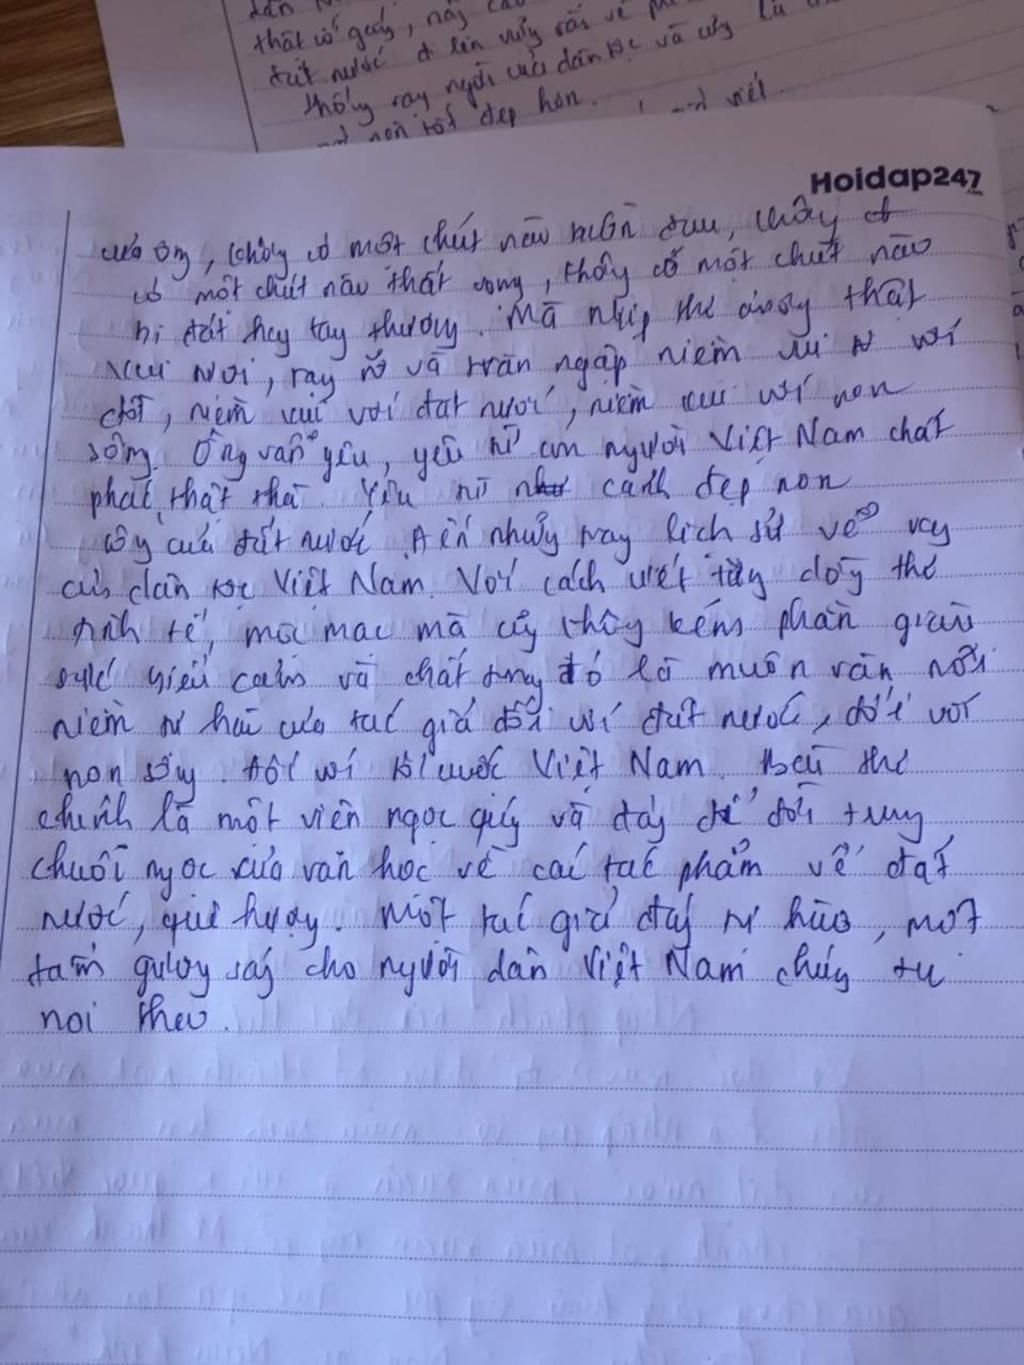 thật cố gắng, này
đất nước đi lên vững
thống ray ngời của dân tộc và
non tốt đẹp hơn.
Hoidap247
của ông, không có một chút nào buồn đau, không
có một chút nào thất vọng, thấy có một chút nào
bi đát hay tay thương. Mà nhịp thơ thật
vui, ray rứ và tràn ngập niềm vui với
đời, niềm vui với đất nước, niềm vui với non
sông. Ông vẫn yêu, yêu từ con người Việt Nam chất
phác, thật thà. Yêu từ cảnh đẹp non
sông của đất nước. Đến những tray lịch sử vẻ vag
của dân tộc Việt Nam. Với cách viết từng dòng thơ
tinh tế, mộc mạc mà cũng không kém phần giàu
sức biểu cảm và chất đó là muôn vàn nỗi
niềm tự hào của tác giả đối với đất nước, đối với
non sông. Đối với tổ quốc Việt Nam. Bài thơ
chính là một viên ngọc quý và đáy trug
chuỗi ngọc của văn học về các tác phẩm về đất
nước, quê hương. Một tác giả đáy tự hào, một
tấm gương sáng cho người dân Việt Nam chúng ta
noi theo.